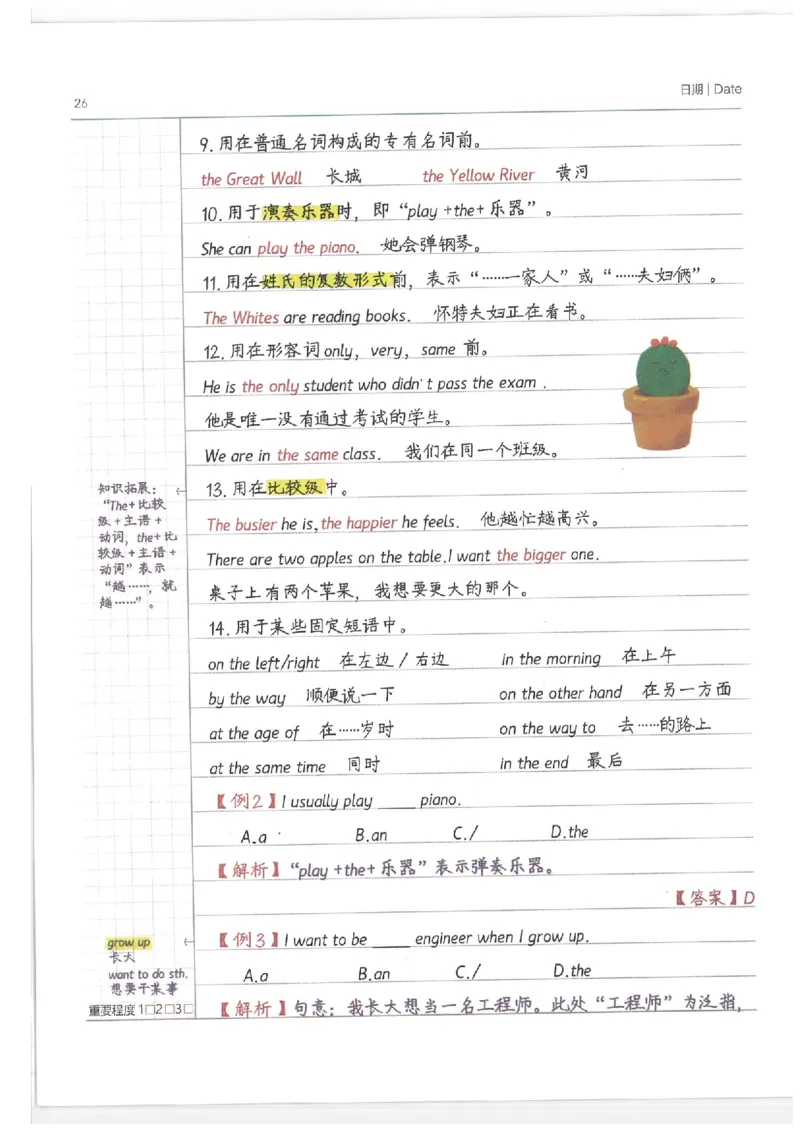 26
日期 | Date
9.用在普通名词构成的专有名词前。
the Great Wall 长城 the Yellow River 黄河
10.用于演奏乐器时，即“play +the+ 乐器”。
She can play the piano. 她会弹钢琴。
11.用在姓氏的复数形式前，表示“……一家人”或“……夫妇俩”。
The Whites are reading books. 怀特夫妇正在看书。
12.用在形容词only，very，same 前。
He is the only student who didn't pass the exam .
他是唯一没有通过考试的学生。
We are in the same class. 我们在同一个班级。
13.用在比较级中。
The busier he is,the happier he feels. 他越忙越高兴。
There are two apples on the table.I want the bigger one.
桌子上有两个苹果，我想要更大的那个。
14.用于某些固定短语中。
on the left/right 在左边 / 右边 in the morning 在上午
by the way 顺便说一下 on the other hand 在另一方面
at the age of 在……岁时 on the way to 去……的路上
at the same time 同时 in the end 最后
【例2】I usually play ____ piano.
A.a B.an C./ D.the
【解析】“play +the+ 乐器”表示弹奏乐器。
【答案】D
【例3】I want to be ____ engineer when I grow up.
A.a B.an C./ D.the
【解析】句意：我长大想当一名工程师。此处“工程师”为泛指，
知识拓展：
“The+ 比较
级 + 主语 +
动词，the+ 比
较级 + 主语 +
动词”表示
“越……，就
越……”。
grow up
长大
want to do sth.
想要干某事
重要程度 1□2□3□